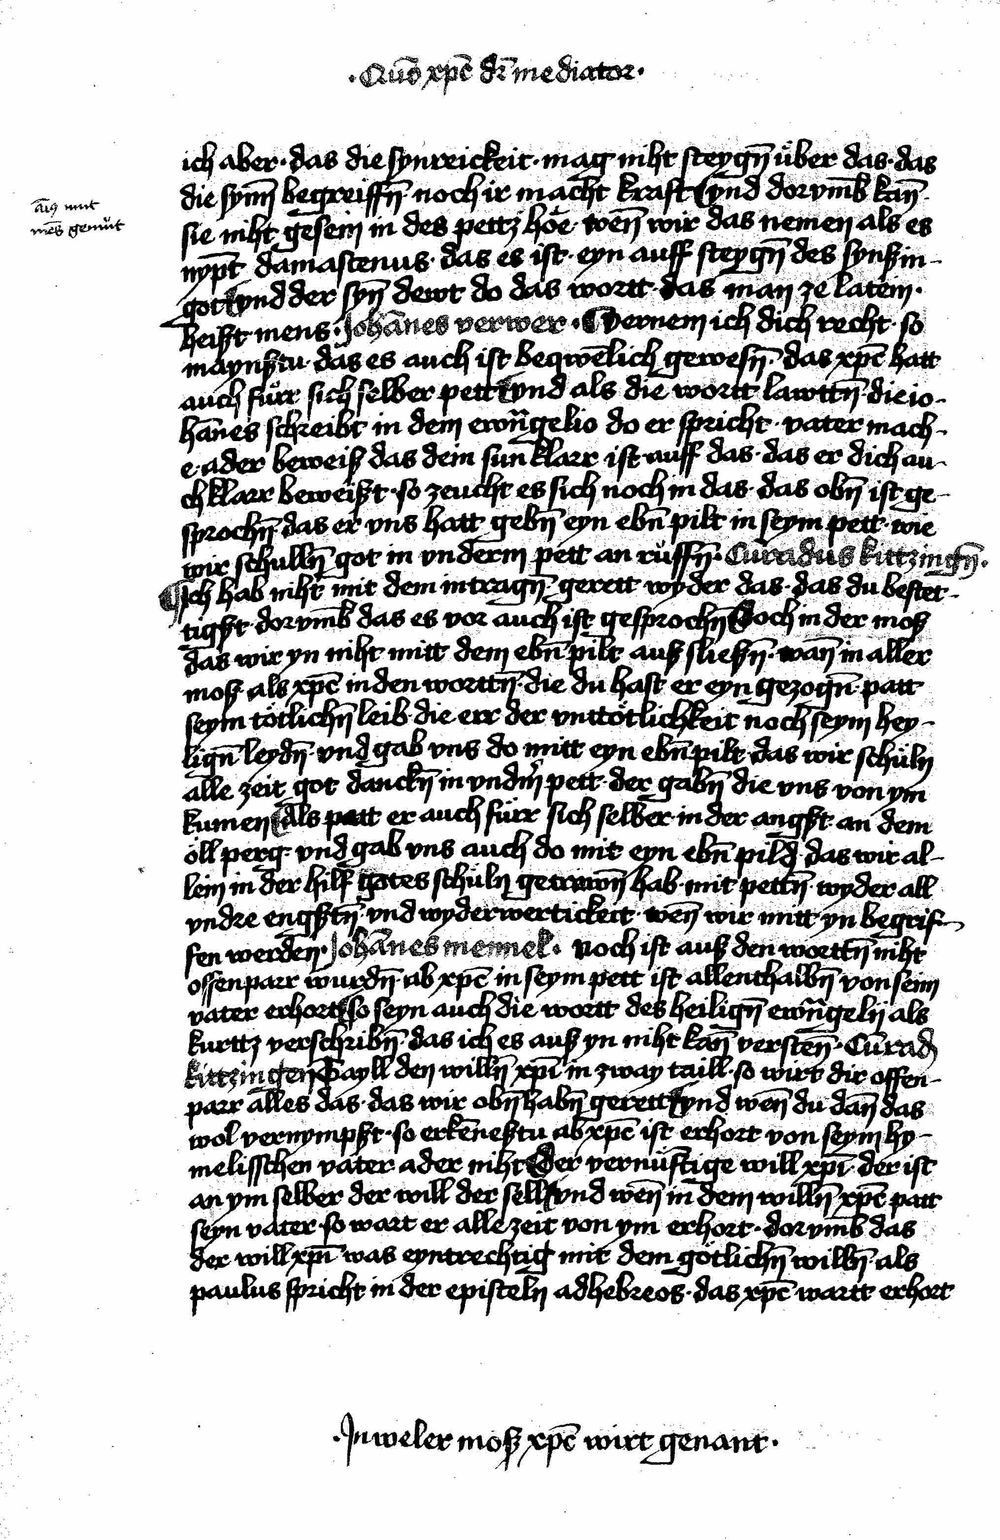 ·Quō xpc̄ dr̄ mediator·
ich aber· das die synreickeit· mag niht steygn̄ über das· das
die syn̄n begreiffn̄· noch ir macht kraft vnd dorvmb̄ kan̄·
a͞iꝯ mut
me͞s gemüt
sie niht gesein in des pettz höe· wen̄ wir das nemen als es
nypt̄ damascenus· das es ist· eyn auff steygn̄ des synß in-
got vnd der syn̄ dewt do das wortt das man ze latein·
heißt mens· Johān̄es verwer· Vernem ich dich recht· so
maynßtu· das es auch ist beqwēlich gewesn̄· das xpc̄ hatt
auch fürr sich selber pett vnd als die wortt lawttn̄· die io-
hān̄es schreibt in dem ewn̄gelio do er spricht· vater mach-
e· ader beweiß das dem sun klarr ist· auff das· das er dich au-
ch klarr beweißt· so zeucht es sich noch in das· das obn̄ ist ge-
sprochn̄· das er vns hatt gebn̄ eyn ebn̄ pilt in seym pett· wie
wir schulln̄ got in vnderm pett an rüffn̄· Cūradus kittzingn̄·
Ich hab niht mit dem intragn̄ gerett wyder das· das du bestet-
tigßt· dorvmb̄ das es vor auch ist gesprochn̄ Doch in der moß
das wir yn niht mitt dem ebn̄ pilt auß sließn̄· wan̄ in aller
moß· als xpc̄ in den worttn̄· die du hast er eyn gezogn̄· patt
seym tötlichn̄ leib· die err der vnttötlichkeit noch seym hey-
lign̄ leydn̄· vnd gab vns do mitt eyn ebn̄ pilt· das wir schüln
alle zeit got danckn̄ in vndm̄ pett· der gabn̄ die vns von ym
kumen Als patt er auch fürr sich selber· in der angßt· an dem
öll perg· vnd gab vns auch do mit eyn ebn̄ pild· das wir al-
lein in der hilf gotes schüln getrawn̄ hab· mit pettn̄· wyder all
vndre engßtn̄· vnd wyderwertickeit· wen̄ wir mitt yn begrif-
fen werden· Johān̄es mennel· Noch ist auß den worttn̄ niht
offenparr wurdn̄· ab xpc̄ in seym pett ist allenthalbn̄ von seim
vater erhort so seyn auch die wortt des heilign̄ ewn̄geln als
kurttz verschribn̄· das ich es auß yn niht kan̄ verstēn̄· Cūrad
kittzingen Tayll den willn̄ xpī in zway taill· so wirt dir offen-
parr alles das· das wir obn̄ habn̄ gerett vnd wen̄ du dan̄ das
wol vernympßt· so erkēneßtu ab xpc̄ ist erhort von seym hy-
melisschen vater ader niht Der vernüftige will xpī· der ist
an ym selber der will der sell vnd wen̄ in dem willn̄ xpc̄ patt
seyn vater· so wart er alle zeit von ym erhort· dorvmb̄ das
der will xpī was eyntrechtig mit dem götlichn̄ willn̄· als
paulus spricht in der episteln adhebreos· das xpc̄ wartt erhort
·In weler moß xpc̄ wirt genant·